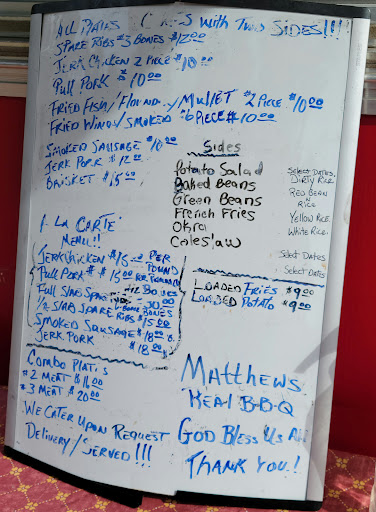 All Plates Comes with Two Sides!!!
Spare Ribs #3 Bones $12.00
Jerk Chicken 2 Piece $10.00
Pull Pork $10.00
Fried Fish/Flound./Mullet #2 Piece $10.00
Fried Wings/Smoked #6 Piece $10.00
Smoked Sausage $10.00
Jerk Pork $12.00
Brisket $15.00
Sides
Potato Salad
Baked Beans
Green Beans
French Fries
Okra
Coleslaw
Select Dates
Dirty Rice
Red Bean
n
Rice
Yellow Rice
White Rice
Select Dates
Select Dates
A-La Carte
Menu!!
Jerk Chicken $15.00 Per Pound
Pull Pork $15.00 Per Pound
Full Slab Spare Ribs 12 Bones 30.00
1/2 Slab Spare Ribs 6 Bones $15.00
Smoked Sausage $18.00
Jerk Pork $18.00
Loaded Fries $9.00
Loaded Potato $9.00
Combo Plates
#2 Meat $16.00
#3 Meat $20.00
We Cater Upon Request
Delivery/Served!!!
Matthews
Real B-B-Q
God Bless Us All
Thank You!